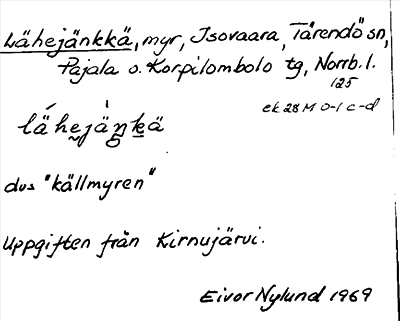 Lähejänkkä, myr, Isovaara, Tärendö sn,
Pajala o. Korpilombolo tg, Norrb. l.
125
ek 28 M 0-1 c-d
lä́heján̥kä
dvs "källmyren"
Uppgiften från Kirnujärvi.
Eivor Nylund 1969